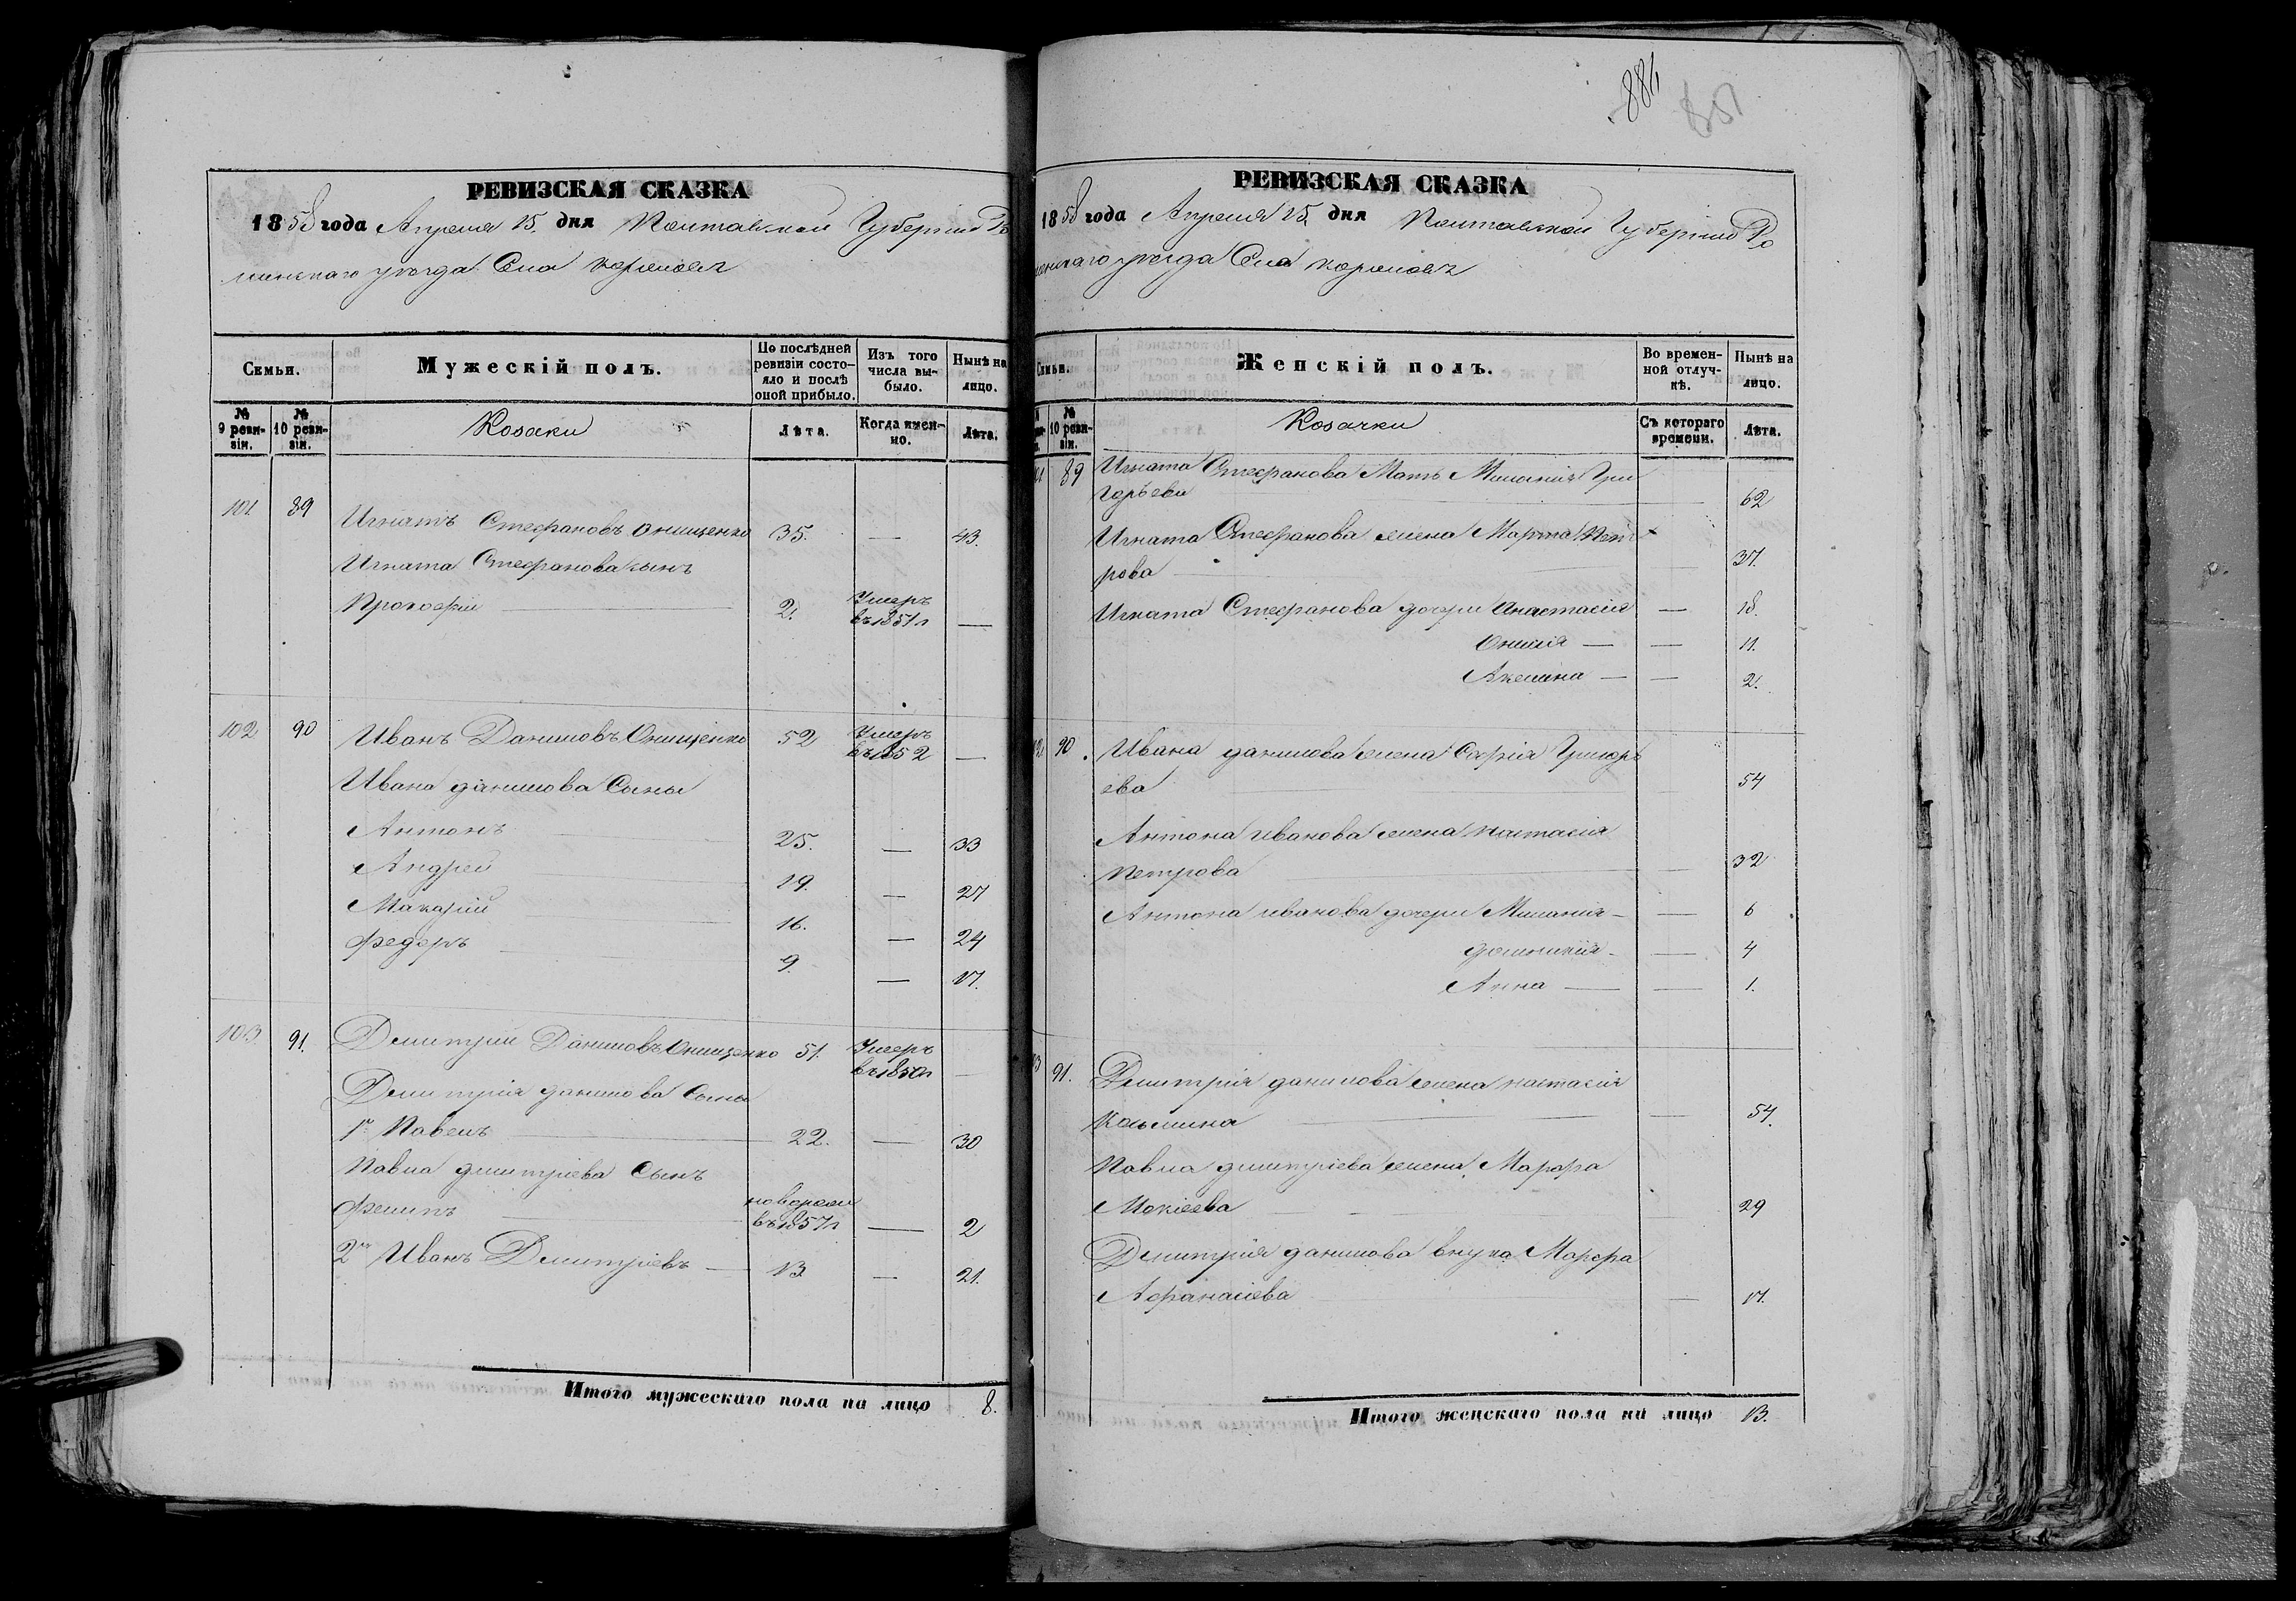 884
РЕВИЗСКАЯ СКАЗКА
1858 года Апреля 15. дня Полтавской Губернии Ро
менскаго уезда Села
Семьи.
Мужескій полъ.
По послѣдней ревизіи состояло и послѣ оной прибыло.
Изъ того числа выбыло.
Нынѣ на лицо.
№ 9 ревизіи.
№ 10 ревизіи.
Козаки
Лѣта.
Когда именно.
Лѣта.
101. 89 Игнатъ Стефановъ Онищенко 35. — 43.
Игната Стефанова сынъ
Прокофій 2. Умеръ въ 1851 г —
102 90 Иванъ Даниловъ Онищенко 52 Умеръ въ 1852 —
Ивана Данилова Сыны
Антонъ 25. — 33
Андрей 19. — 27
Макарій 16. — 24
Федоръ 9. — 17.
103 91. Димитрій Даниловъ Онищенко 51. Умеръ въ 1850 г —
Димитрія Данилова Сыны
1й Павелъ 22. — 30
Павла Димитріева Сынъ
Филипъ новорожд въ 1857 г — 2
2й Иванъ Димитріевъ — 13 — 21.
Итого мужескаго пола на лицо 8.
РЕВИЗСКАЯ СКАЗКА
1858 года Апреля 15. дня Полтавской Губернии Ро
менскаго уезда Села
Семьи.
Женскій полъ.
Во временной отлучкѣ.
Нынѣ на лицо.
№ 10 ревизіи.
Козачки
Съ котораго времени.
Лѣта.
89 Игната Стефанова Мать Миланія Гри
горьева — 62
Игната Стефанова жена Марта Пет
рова — 37.
Игната Стефанова дочери Анастасія — 18.
— — 11.
Акелина — — 2.
90. Ивана Данилова жена Софія Григорь
ева — 54
Антона Иванова жена Настасія
Петрова — 32
Антона Иванова дочери Миланія — — 6
Домникія — — 4
Анна — — 1.
91. Димитрія Данилова жена Настасія
Козьмина — 54.
Павла Димитріева жена Марфа
Мокіева — 29
Димитрія Данилова внука Марфа
Афанасіева — 17.
Итого женскаго пола на лицо 13.